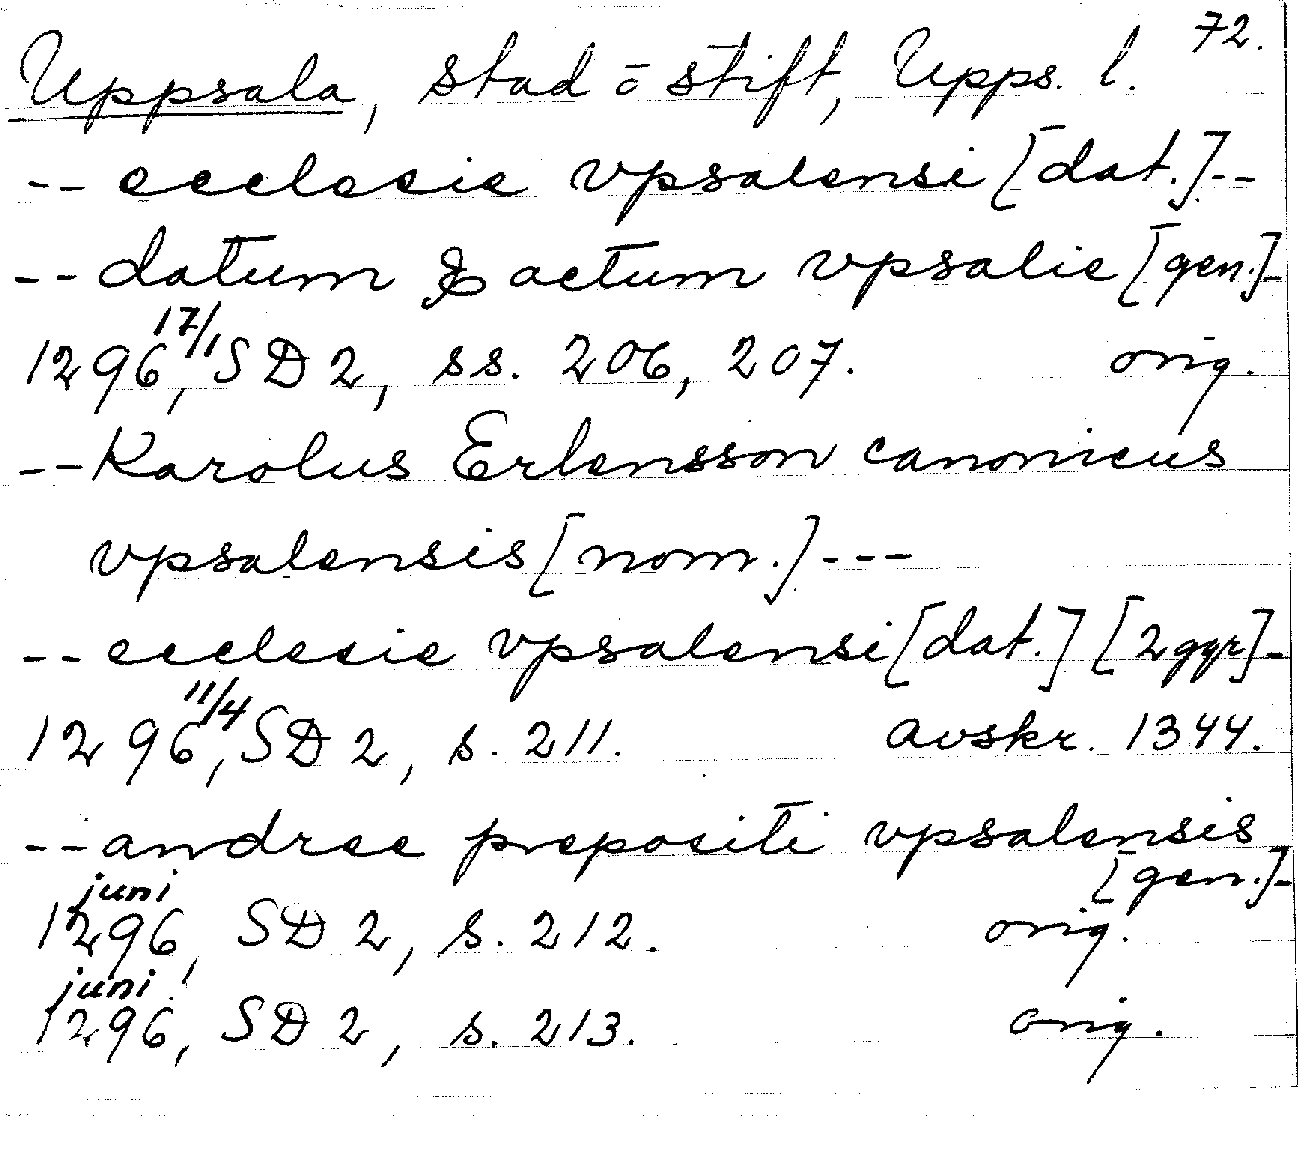 72.
Uppsala, stad ō stift, Upps. l.
-- ecclesie vpsalensi [dat.]--
-- datum & actum vpsalie [gen.]-
1296 17/1, SD 2, ss. 206, 207. orig.
-- Karolus Erlensson canonicus
vpsalensis [nom.] ---
-- ecclesie vpsalensi [dat.] [2 ggr]-
1296 11/4, SD 2, s. 211. avskr. 1344.
-- andree prepositi vpsalensis
[gen.]-
juni
1296, SD 2, s. 212. orig.
juni
1296, SD 2, s. 213. orig.